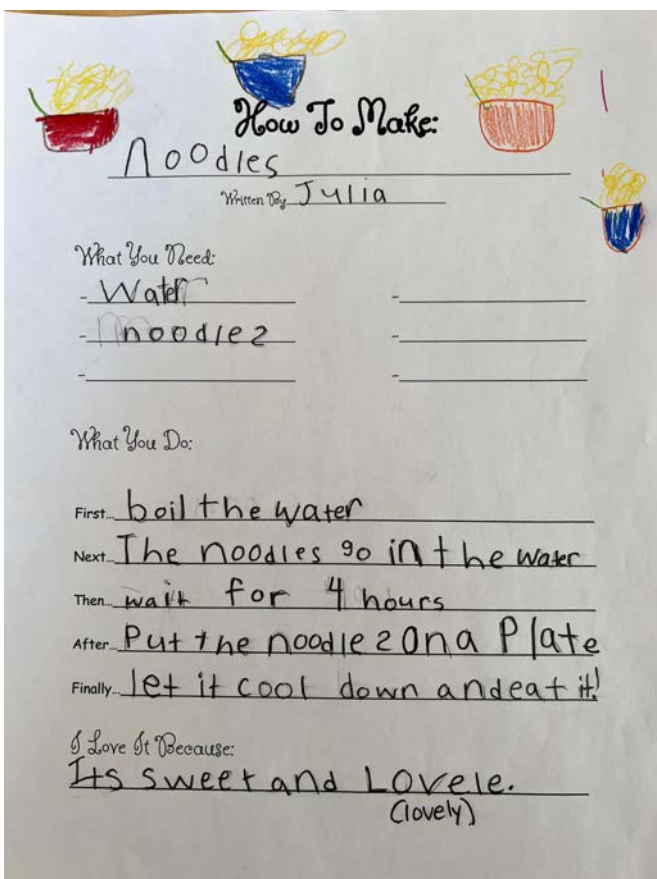 How To Make:
Noodles
Written By Julia
What You Need:
- Water -
- noodle2 -
- -
What You Do:
First... boil the water
Next... The noodles go in the water
Then... wait for 4 hours
After... Put the noodle2 on a Plate
Finally... let it cool down and eat it!
I Love It Because:
Its sweet and Lovele.
(lovely)